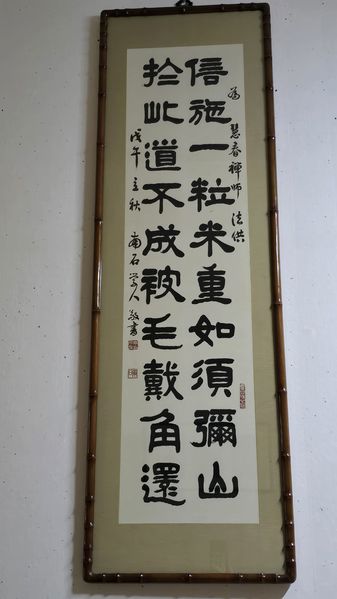 為 慧春禪師 法供
信施一粒米重如須彌山
扵此道不成被毛戴角還
戊午立秋 南石学人敬書